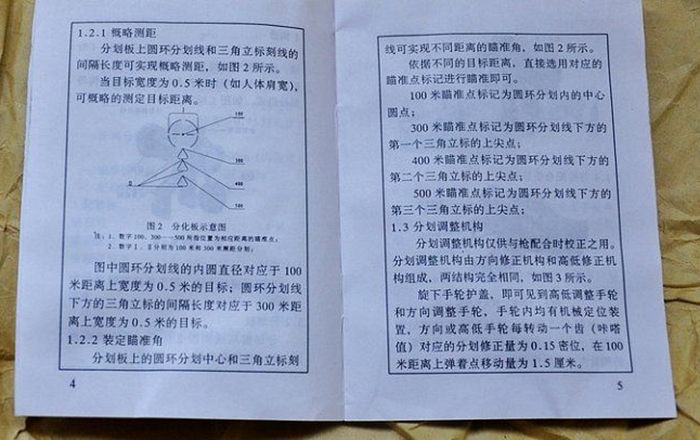 1.2.1 概略测距
分划板上圆环分划线和三角立标刻线的
间隔长度可实现概略测距，如图2所示。
当目标宽度为0.5米时（如人体肩宽），
可概略的测定目标距离。
100
300
400
500
图2 分化板示意图
注：1、数字100、300——500所指位置为相应距离的瞄准点；
2、数字Ⅰ、Ⅱ分别为100米和300米测距分划；
图中圆环分划线的内圆直径对应于100
米距离上宽度为0.5米的目标；圆环分划线
下方的三角立标的间隔长度对应于300米距
离上宽度为0.5米的目标。
1.2.2 装定瞄准角
分划板上的圆环分划中心和三角立标刻
4
线可实现不同距离的瞄准角，如图2所示。
依据不同的目标距离，直接选用对应的
瞄准点标记进行瞄准即可。
100米瞄准点标记为圆环分划内的中心
圆点；
300米瞄准点标记为圆环分划线下方的
第一个三角立标的上尖点；
400米瞄准点标记为圆环分划线下方的
第二个三角立标的上尖点；
500米瞄准点标记为圆环分划线下方的
第三个三角立标的上尖点；
1.3 分划调整机构
分划调整机构仅供与枪配合时校正之用。
分划调整机构由方向修正机构和高低修正机
构组成，两结构完全相同，如图3所示。
旋下手轮护盖，即可见到高低调整手轮
和方向调整手轮，手轮内均有机械定位装
置，方向或高低手轮每转动一个齿（咔嗒
值）对应的分划修正量为0.15密位，在100
米距离上弹着点移动量为1.5厘米。
5